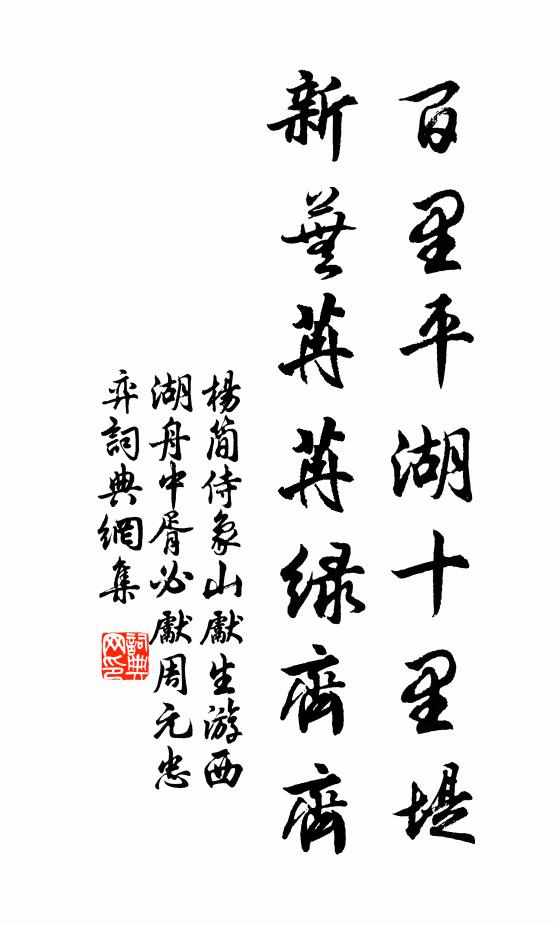 百里平湖十里堤
新蕪苒苒绿齊齊
楊簡侍象山獻生游西
湖舟中胥必獻周元忠
弈詞典網集
詞典网印